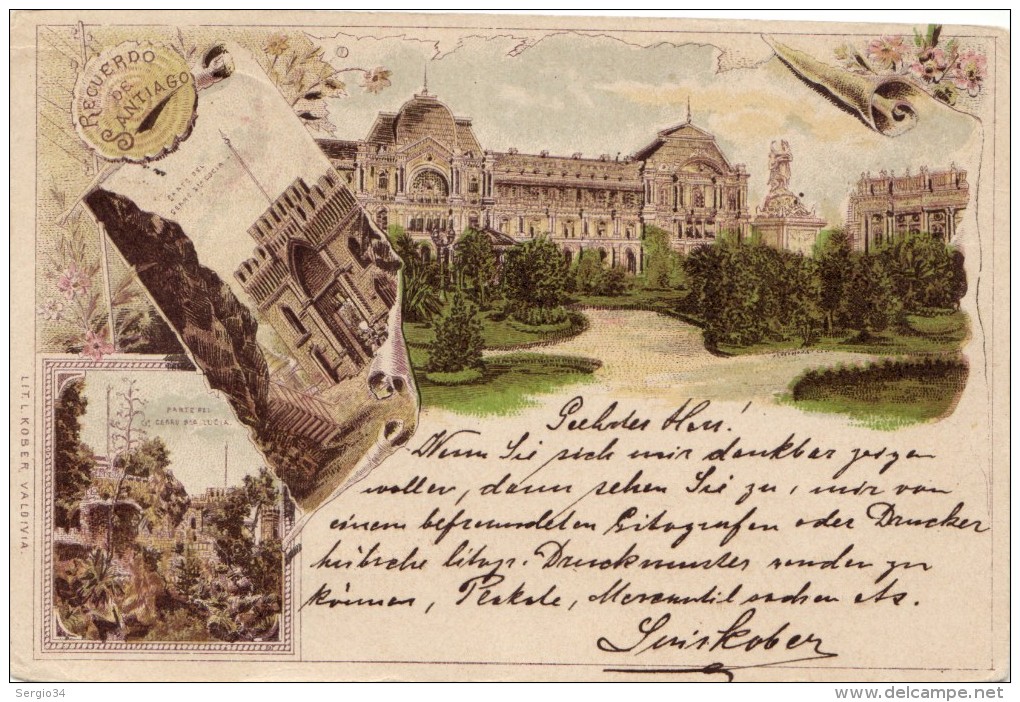 RECUERDO
DE
SANTIAGO
PARTE DEL
CERRO STA LUCIA.
PARTE DEL
CERRO STA LUCIA.
LIT. L. KOBER, VALDIVIA.
Geehrter Herr!
Wenn Sie sich mir dankbar zeigen
wollen, dann sehen Sie zu, mir von
einem befreundeten Litografen oder Drucker
hübsche litogr. Druckmuster senden zu
können, Plakate, Mercantilsachen etc.
Luis Kober
Sergio34
www.delcampe.net